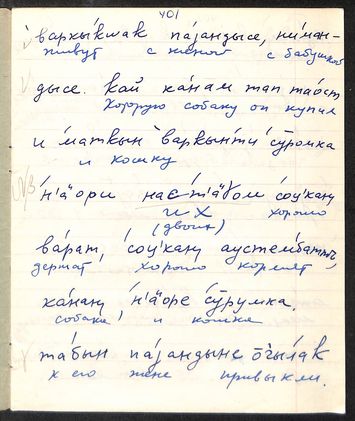 401
варкы́квак па́јандысе, ни́ман-
живут с женой с бабушкой
дысе. кай ка́нам тап та́ост
Которую собаку он купил
и ма́ткын варкынти́ сӯ́ромка
и кошку
н'ӓори насты́дом соӷкан,
их хорошо
(двоих)
ва́рат, соӷкан аустемба́тт,
держат хорошо кормят
ка́нан, н'ӓоре сӯ́румка.
собака, и кошка
та́бын па́јандыне о̄ӷылак
к его жене привыкли.